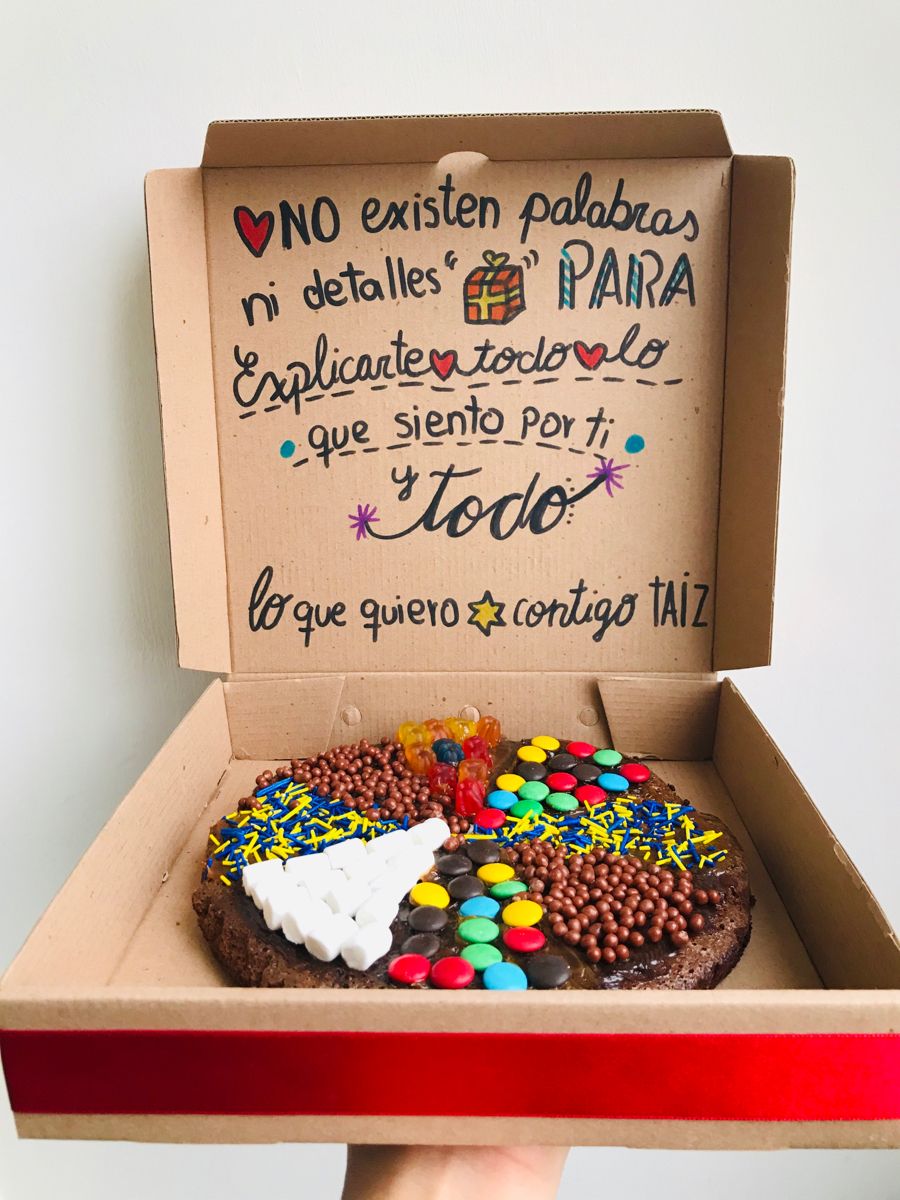 NO existen palabras
ni detalles " " PARA
Explicarte todo lo
que siento por ti
y todo
lo que quiero contigo TAIZ